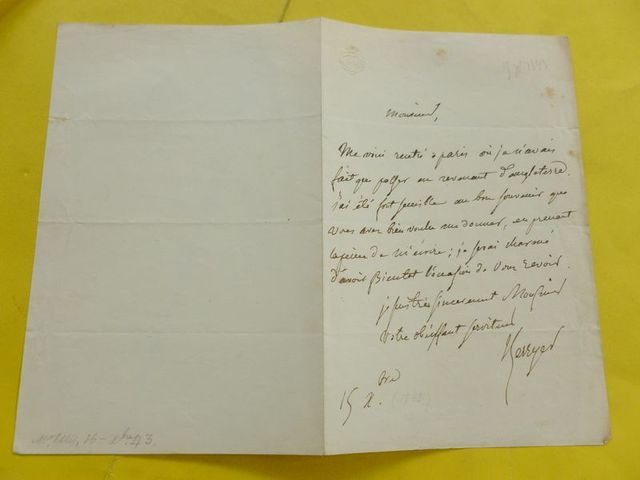 Monsieur,
Me voici rentré à paris où je n'avais
fait que passer en revenant d'angleterre.
j'ai été fort sensible au bon souvenir que
vous avez bien voulu me donner, en prenant
la peine de m'écrire; je serai charmé
d'avoir Bientot l'occasion de vous revoir.
je suis très sincerement Monsieur
votre obéissant serviteur
Berryer
15 X.bre